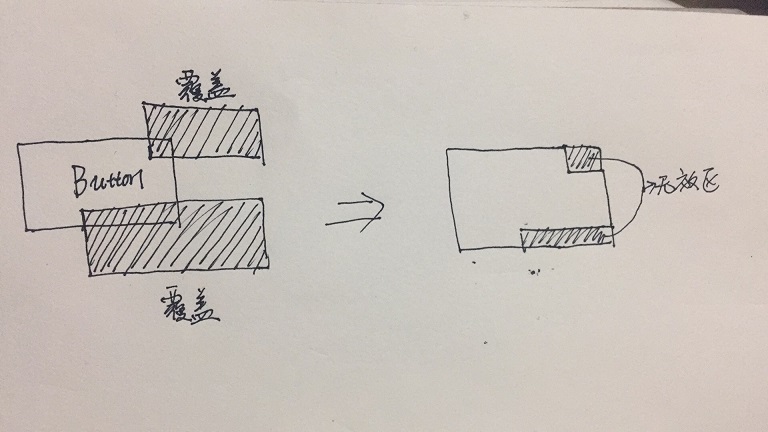 覆盖
Button
覆盖
无效区